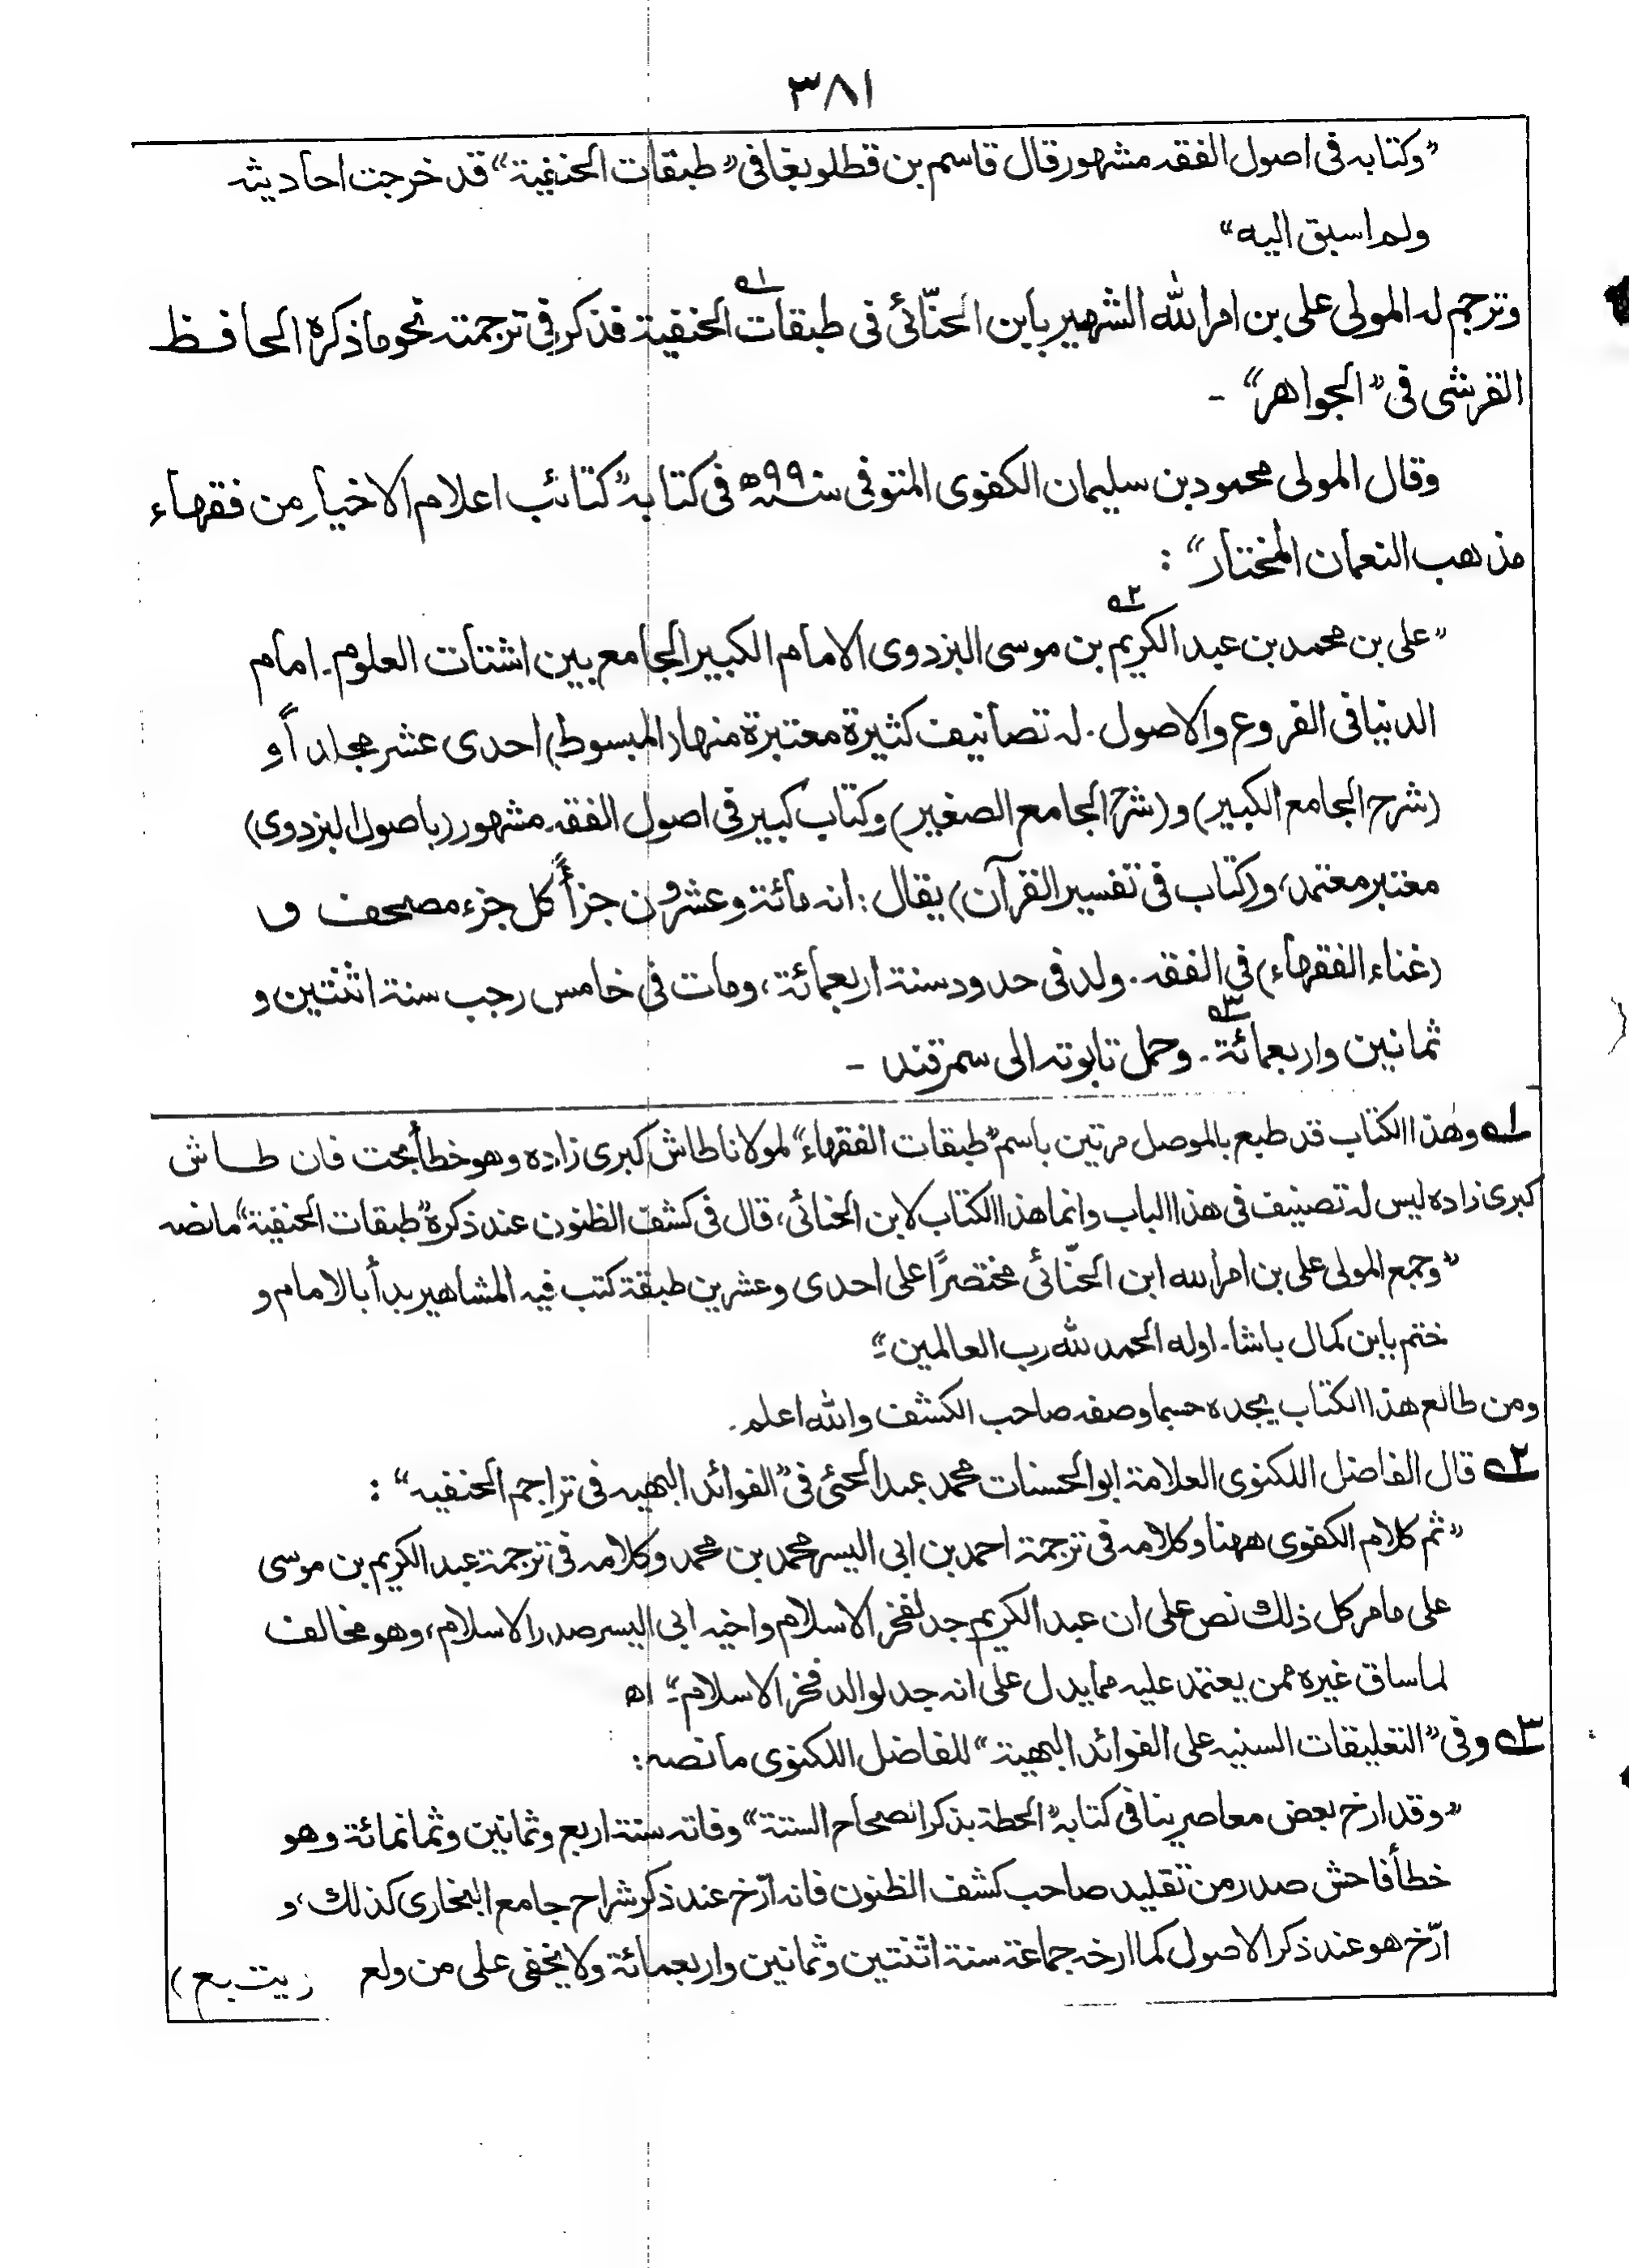 ٣٨١
”وكتابه فى اصول الفقه مشهور قال قاسم بن قطلوبغا فى ”طبقات الحنفية“ قد خرجت احاديثه
ولم اسبق اليه“
وترجم له المولى على بن امر الله الشهير بابن الحنّائى فى طبقات الحنفية ١ه فذكر فى ترجمته نحو ما ذكره الحافظ
القرشى فى ”الجواهر“ -
وقال المولى محمود بن سليمان الكفوى المتوفى سنة ٩٩٠ه فى كتابه ”كتائب اعلام الاخيار من فقهاء
مذهب النعمان المختار“ :
”على بن محمد بن عبد الكريم ٢ه بن موسى البزدوى الامام الكبير الجامع بين اشتات العلوم. امام
الدنيا فى الفروع والاصول. له تصانيف كثيرة معتبرة منها (المبسوط) احدى عشر مجلداً و
(شرح الجامع الكبير) و (شرح الجامع الصغير) وكتاب كبير فى اصول الفقه مشهور (باصول البزدوى)
معتبر معتمد، و(كتاب فى تفسير القرآن) يقال : انه مائة وعشرون جزأً كل جزء مصحف و
(غناء الفقهاء) فى الفقه. ولد فى حدود سنة اربعمائة، ومات فى خامس رجب سنة اثنتين و
ثمانين واربعمائة ٣ه. وحمل تابوته الى سمرقند -
١ه وهٰذا الكتاب قد طبع بالموصل مرتين باسم ”طبقات الفقهاء“ لمولانا طاش كبرى زاده وهو خطأ بحت فان طاش
كبرى زاده ليس له تصنيف فى هذا الباب وانما هذا الكتاب لابن الحنائى، قال فى كشف الظنون عند ذكره ”طبقات الحنفية“ ما نصه
”وجمع المولى على بن امر الله ابن الحنّائى مختصرًا على احدى وعشرين طبقة كتب فيه المشاهير بدأ بالامام و
ختم بابن كمال باشا. اوله الحمد لله رب العالمين“-
ومن طالع هذا الكتاب يجده حسبما وصفه صاحب الكشف والله اعلم.
٢ه قال الفاضل اللكنوى العلامة ابو الحسنات محمد عبد الحئى فى ”الفوائد البهيه فى تراجم الحنفيه“ :
”ثم كلام الكفوى ههنا وكلامه فى ترجمة احمد بن ابى اليسر محمد بن محمد وكلامه فى ترجمة عبد الكريم بن موسى
على ما مر كل ذلك نص على ان عبد الكريم جد لفخر الاسلام واخيه ابى اليسر صدر الاسلام، وهو مخالف
لما ساق غيره ممن يعتمد عليه مما يدل على انه جد لوالد فخر الاسلام“- اه
٣ه وفى ”التعليقات السنيه على الفوائد البهية“ للفاضل اللكنوى ما نصه :
”وقد ارخ بعض معاصرينا فى كتابه ”الحطة بذكر الصحاح الستة“ وفاته سنة اربع وثمانين وثمانمائة وهو
خطأ فاحش صدر من تقليد صاحب كشف الظنون فانه ارّخ عند ذكر شراح جامع البخارى كذلك، و
ارّخ هو عند ذكر الاصول كما ارخه جماعة سنة اثنتين وثمانين واربعمائة ولا يخفى على من ولع (يتبع)